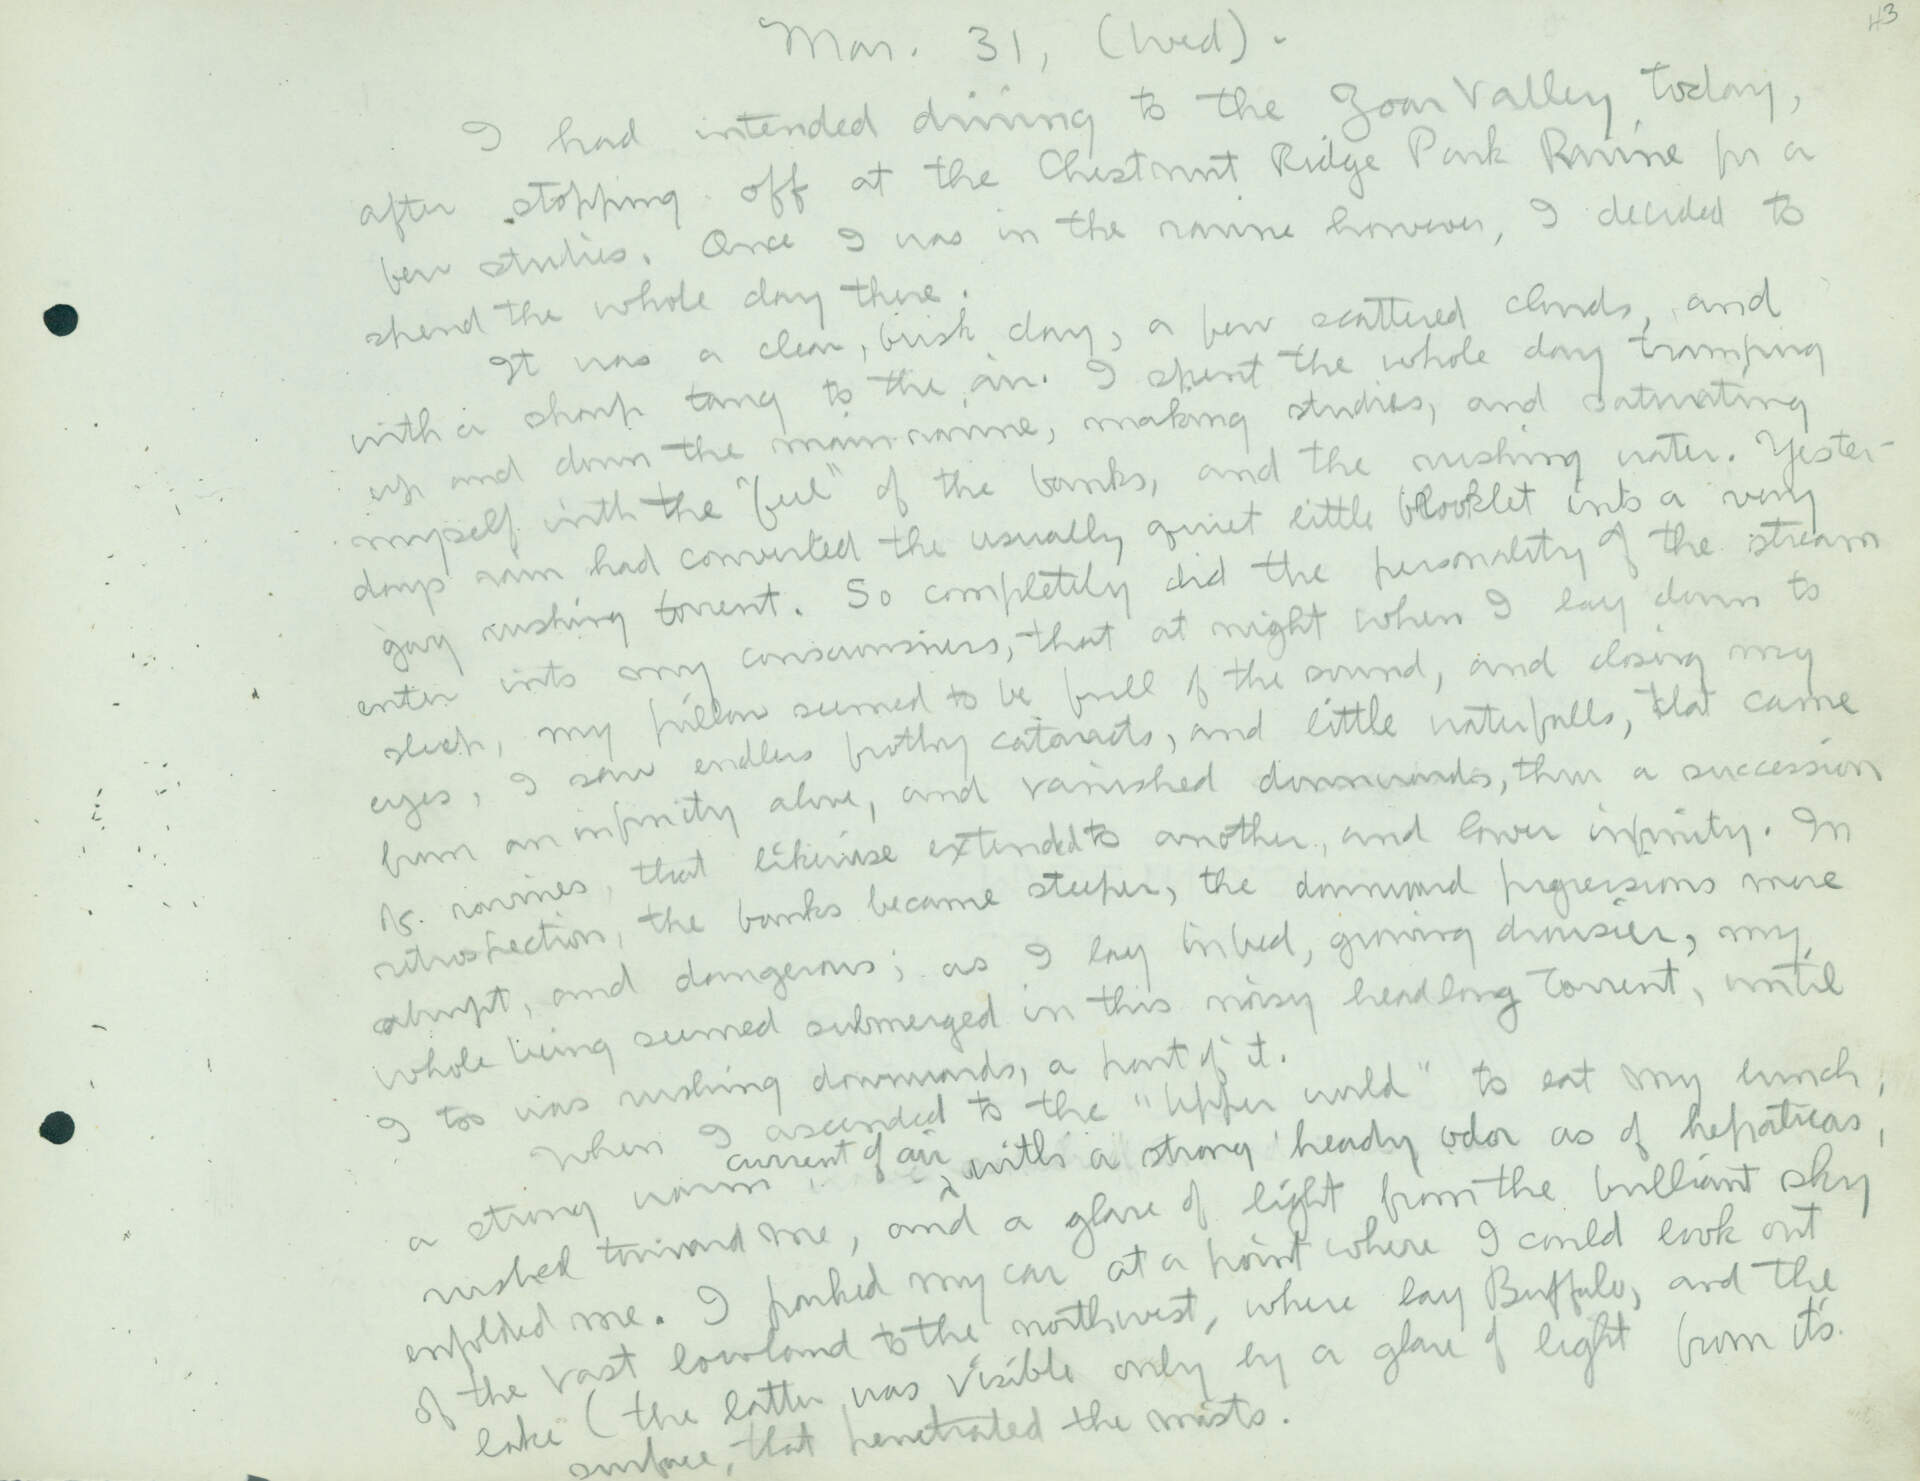 43
Mar. 31, (Wed).
I had intended driving to the Zoar Valley, today,
after stopping off at the Chestnut Ridge Park Ravine for a
few studies. Once I was in the ravine however, I decided to
spend the whole day there.
It was a clear, brisk day, a few scattered clouds, and
with a sharp tang to the air. I spent the whole day tramping
up and down the main ravine, making studies, and saturating
myself with the "feel" of the banks, and the rushing water. Yester-
days rain had converted the usually quiet little brooklet into a very
gay rushing torrent. So completely did the personality of the stream
enter into my consciousness, that at night when I lay down to
sleep, my pillow seemed to be full of the sound, and closing my
eyes, I saw endless frothy cataracts, and little waterfalls, that came
from an infinity above, and vanished downwards, thru a succession
of ravines, that likewise extended to another, and lower infinity. In
retrospection, the banks became steeper, the downward progressions more
abrupt, and dangerous; as I lay in bed, growing drowsier, my
whole being seemed submerged in this noisy headlong torrent, until
I too was rushing downwards, a part of it.
When I ascended to the "Upper world" to eat my lunch,
a strong warm current of air, with a strong heady odor as of hepaticas,
rushed toward me, and a glare of light from the brilliant sky
enfolded me. I parked my car at a point where I could look out
of the vast lowland to the northwest, where lay Buffalo, and the
lake (the latter was visible only by a glare of light from it's
surface, that penetrated the mists.